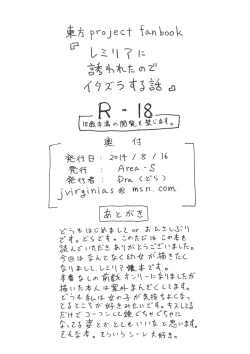 東方 project fanbook
『レミリアに
誘われたので
イタズラする話』
R-18
18歳未満の閲覧を禁じます。
奥付
発行日: 2014/8/16
発行: Area-S
発行者: Dra(どら)
jvirginias@msn.com
あとがき
どうもはじめましてorおひさしぶり
です。どらです。このたびはこの本を
読んでいただきありがとうございました。
今回はなんとなく幼い女が描きたく
なりまして、レミリア様本です。
本番なしの前戯オンリーになりましたが
描いた本人は案外まんぞくしてます。
どうも私は女の子が気持ちよくなっ
てるところが好きみたいです。キスして
だけどコーフンして顔ぐちゃぐちゃに
なってる姿とかとてもいいなと思います。
そんな本。そういうシーン大好き。